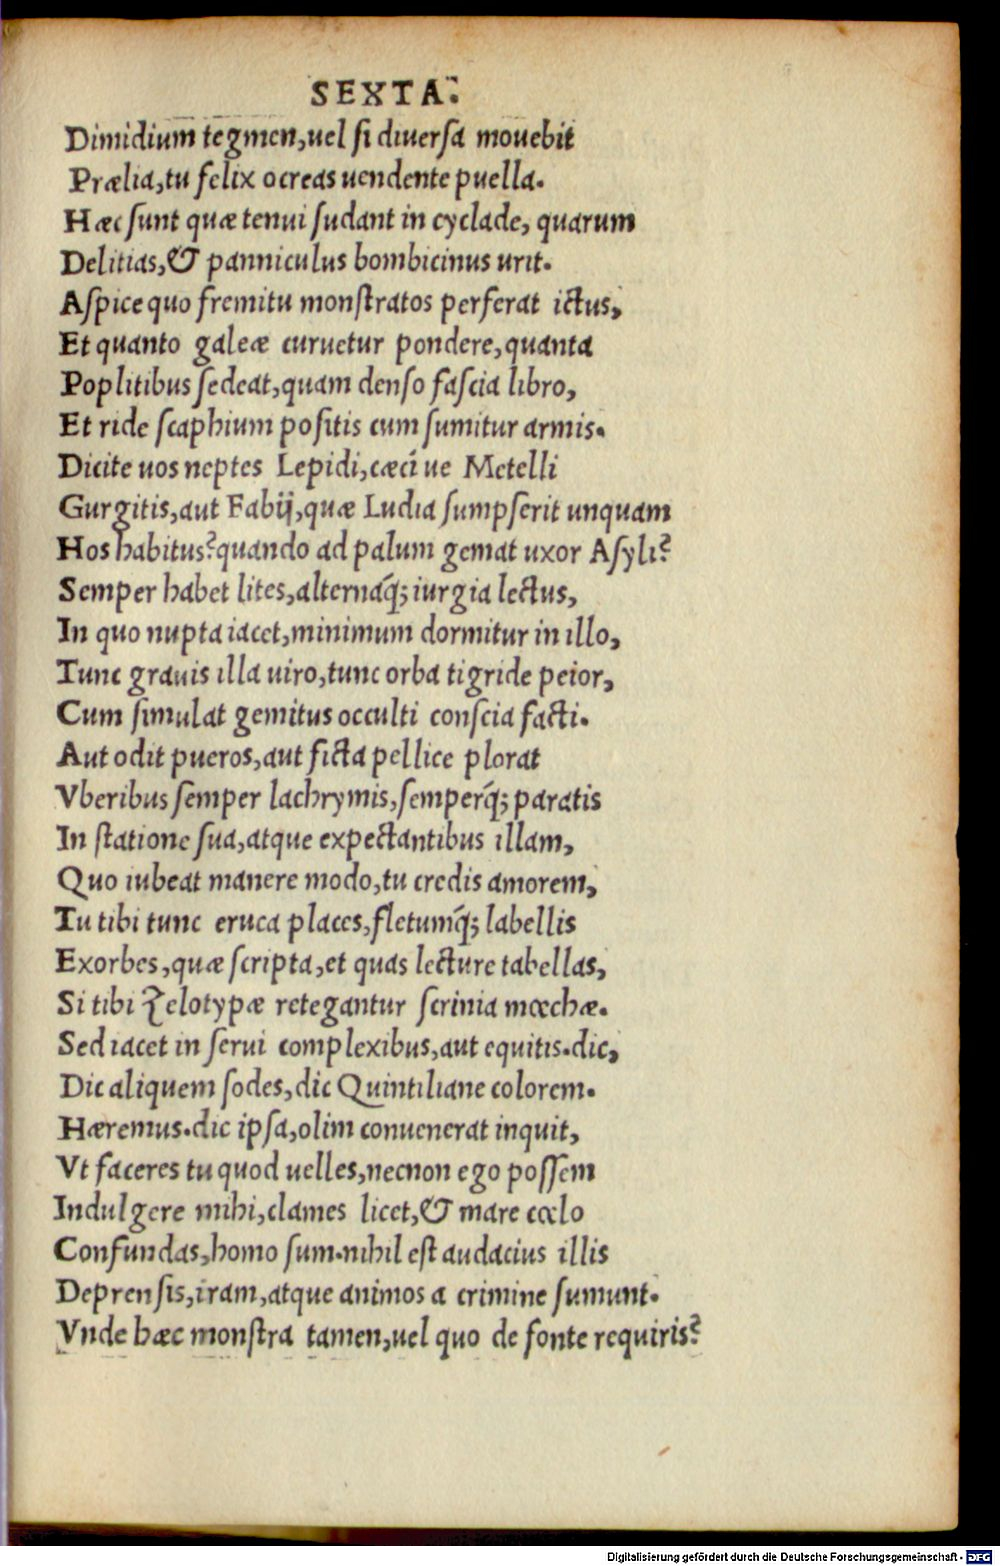 SEXTA.
Dimidium tegmen,uel ſi diuerſa mouebit
Prælia,tu felix ocreas uendente puella.
Hæc ſunt quæ tenui ſudant in cyclade, quarum
Delitias,& panniculus bombicinus urit.
Aſpice quo fremitu monſtratos perferat ictus,
Et quanto galeæ curuetur pondere,quanta
Poplitibus ſedeat,quam denſo faſcia libro,
Et ride ſcaphium poſitis cum ſumitur armis.
Dicite uos neptes Lepidi,cæci ue Metelli
Gurgitis,aut Fabij,quæ Ludia ſumpſerit unquam
Hos habitus?quando ad palum gemat uxor Aſyli?
Semper habet lites,alternaq́;iurgia lectus,
In quo nupta iacet,minimum dormitur in illo,
Tunc grauis illa uiro,tunc orba tigride peior,
Cum ſimulat gemitus occulti conſcia facti.
Aut odit pueros,aut ficta pellice plorat
Vberibus ſemper lachrymis,ſemperq́;paratis
In ſtatione ſua,atque expectantibus illam,
Quo iubeat manere modo,tu credis amorem,
Tu tibi tunc eruca places,fletumq́;labellis
Exorbes,quæ ſcripta,et quas lecture tabellas,
Si tibi zelotypæ retegantur ſcrinia mœchæ.
Sed iacet in ſerui complexibus,aut equitis.dic,
Dic aliquem ſodes,dic Quintiliane colorem.
Hæremus.dic ipſa,olim conuenerat inquit,
Vt faceres tu quod uelles,necnon ego poſſem
Indulgere mihi,clames licet,& mare cœlo
Confundas,homo ſum.nihil eſt audacius illis
Deprenſis,iram,atque animos a crimine ſumunt.
Vnde hæc monſtra tamen,uel quo de fonte requiris?
Digitalisierung gefördert durch die Deutsche Forschungsgemeinschaft - DFG